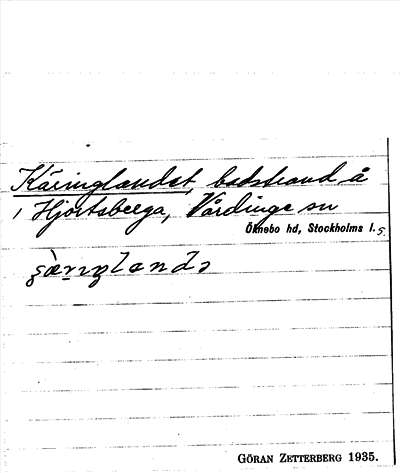 Käringlandet, badstrand å
Hjortsberga, Vårdinge sn
Öknebo hd, Stockholms l.
GÖRAN ZETTERBERG 1935.